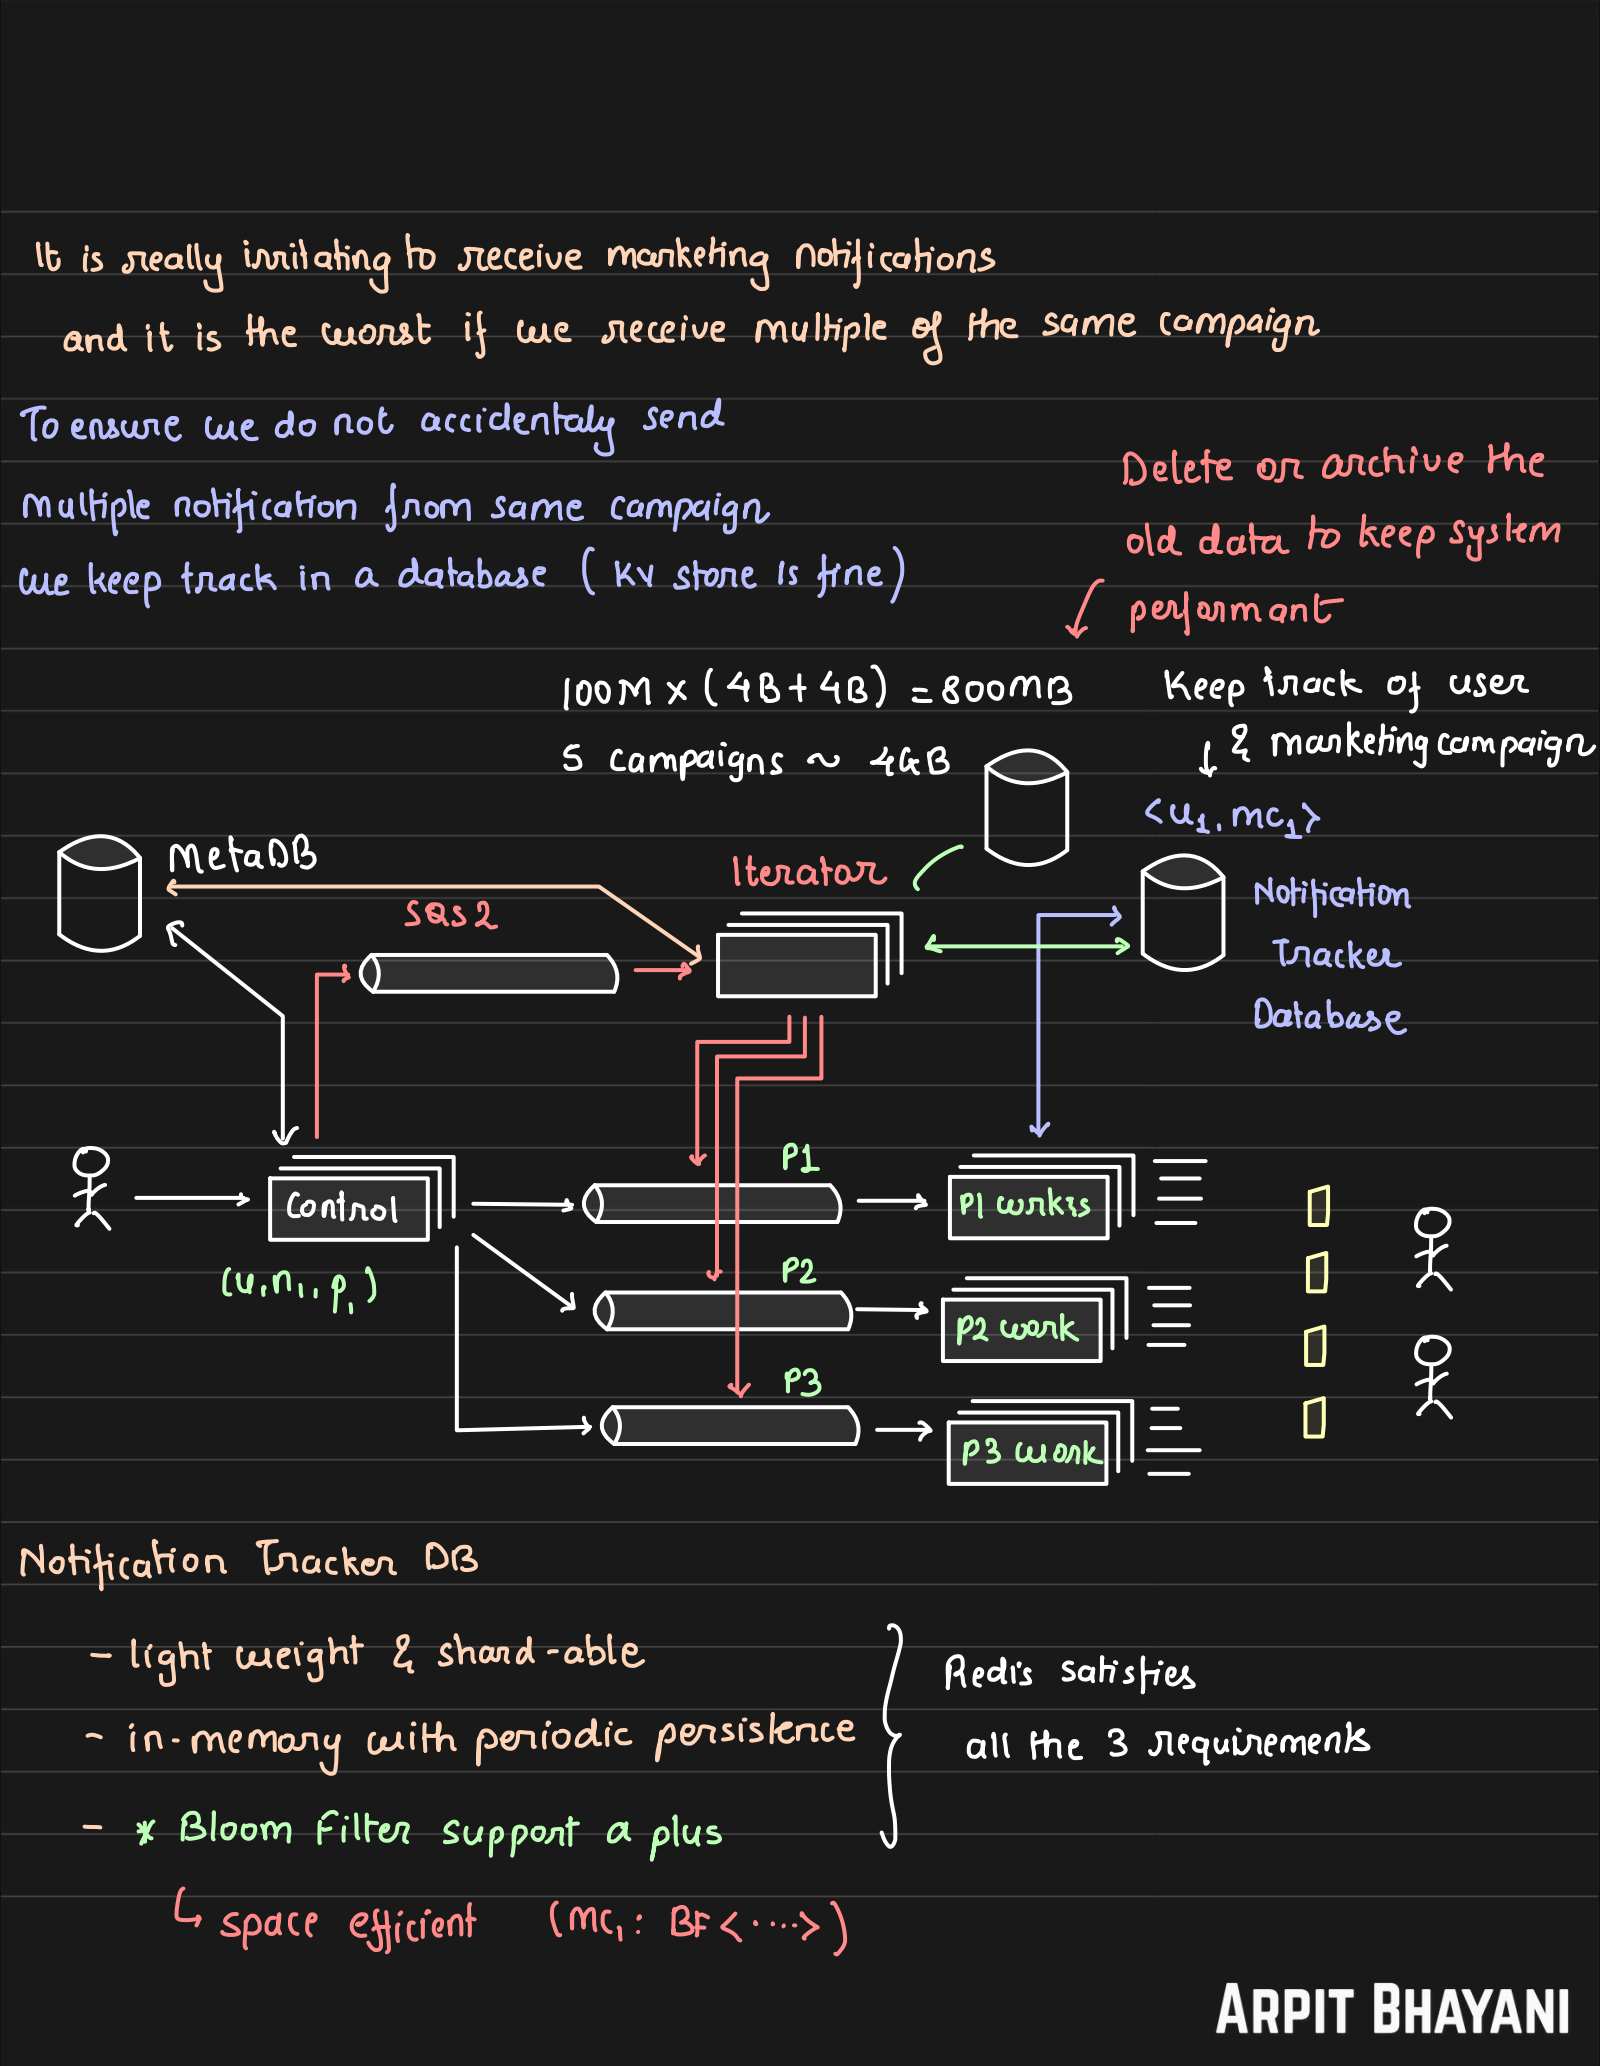 It is really irritating to receive marketing notifications
and it is the worst if we receive multiple of the same campaign
To ensure we do not accidentaly send
multiple notification from same campaign
we keep track in a database ( KV store is fine )
Delete or archive the
old data to keep system
performant
100M x ( 4B + 4B ) = 800MB
5 campaigns ~ 4GB
Keep track of user
& marketing campaign
<u1, mc1>
MetaDB
SQS2
Iterator
Notification
Tracker
Database
Control
(u, n1, p1)
P1
P1 wrkrs
P2
P2 work
P3
P3 work
Notification Tracker DB
- light weight & shard-able
- in-memory with periodic persistence
- * Bloom Filter support a plus
↳ space efficient (mc1 : BF < ····> )
Redis satisfies
all the 3 requirements
ARPIT BHAYANI